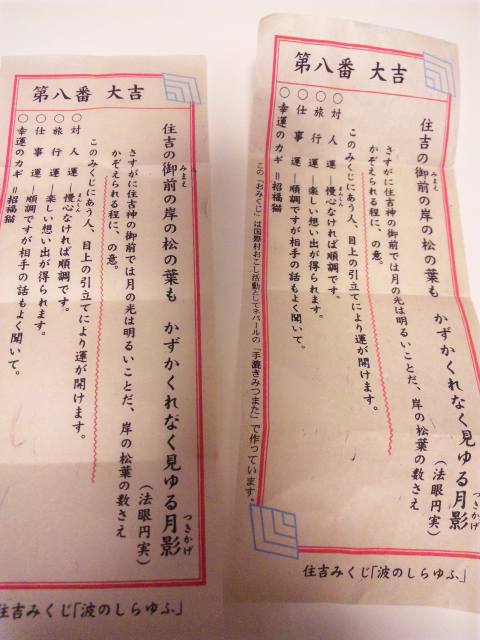 第八番 大吉
住吉の御前の岸の松の葉も かずかくれなく見ゆる月影
みまえ
つきかげ
(法眼円実)
さすがに住吉神の御前では月の光は明るいことだ、岸の松葉の数さえ
かぞえられる程に、の意。
このみくじにあう人、目上の引立てにより運が開けます。
○対人運―慢心なければ順調です。
まんしん
○旅行運―楽しい想い出が得られます。
○仕事運―順調ですが相手の話もよく聞いて。
○幸運のカギ=招福猫
住吉みくじ「波のしらゆふ」
第八番 大吉
住吉の御前の岸の松の葉も かずかくれなく見ゆる月影
みまえ
つきかげ
(法眼円実)
さすがに住吉神の御前では月の光は明るいことだ、岸の松葉の数さえ
かぞえられる程に、の意。
このみくじにあう人、目上の引立てにより運が開けます。
○対人運―慢心なければ順調です。
まんしん
○旅行運―楽しい想い出が得られます。
○仕事運―順調ですが相手の話もよく聞いて。
○幸運のカギ=招福猫
この「おみくじ」は国際村おこし活動としてネパールの「手漉きみつまた」で作っています。
住吉みくじ「波のしらゆふ」